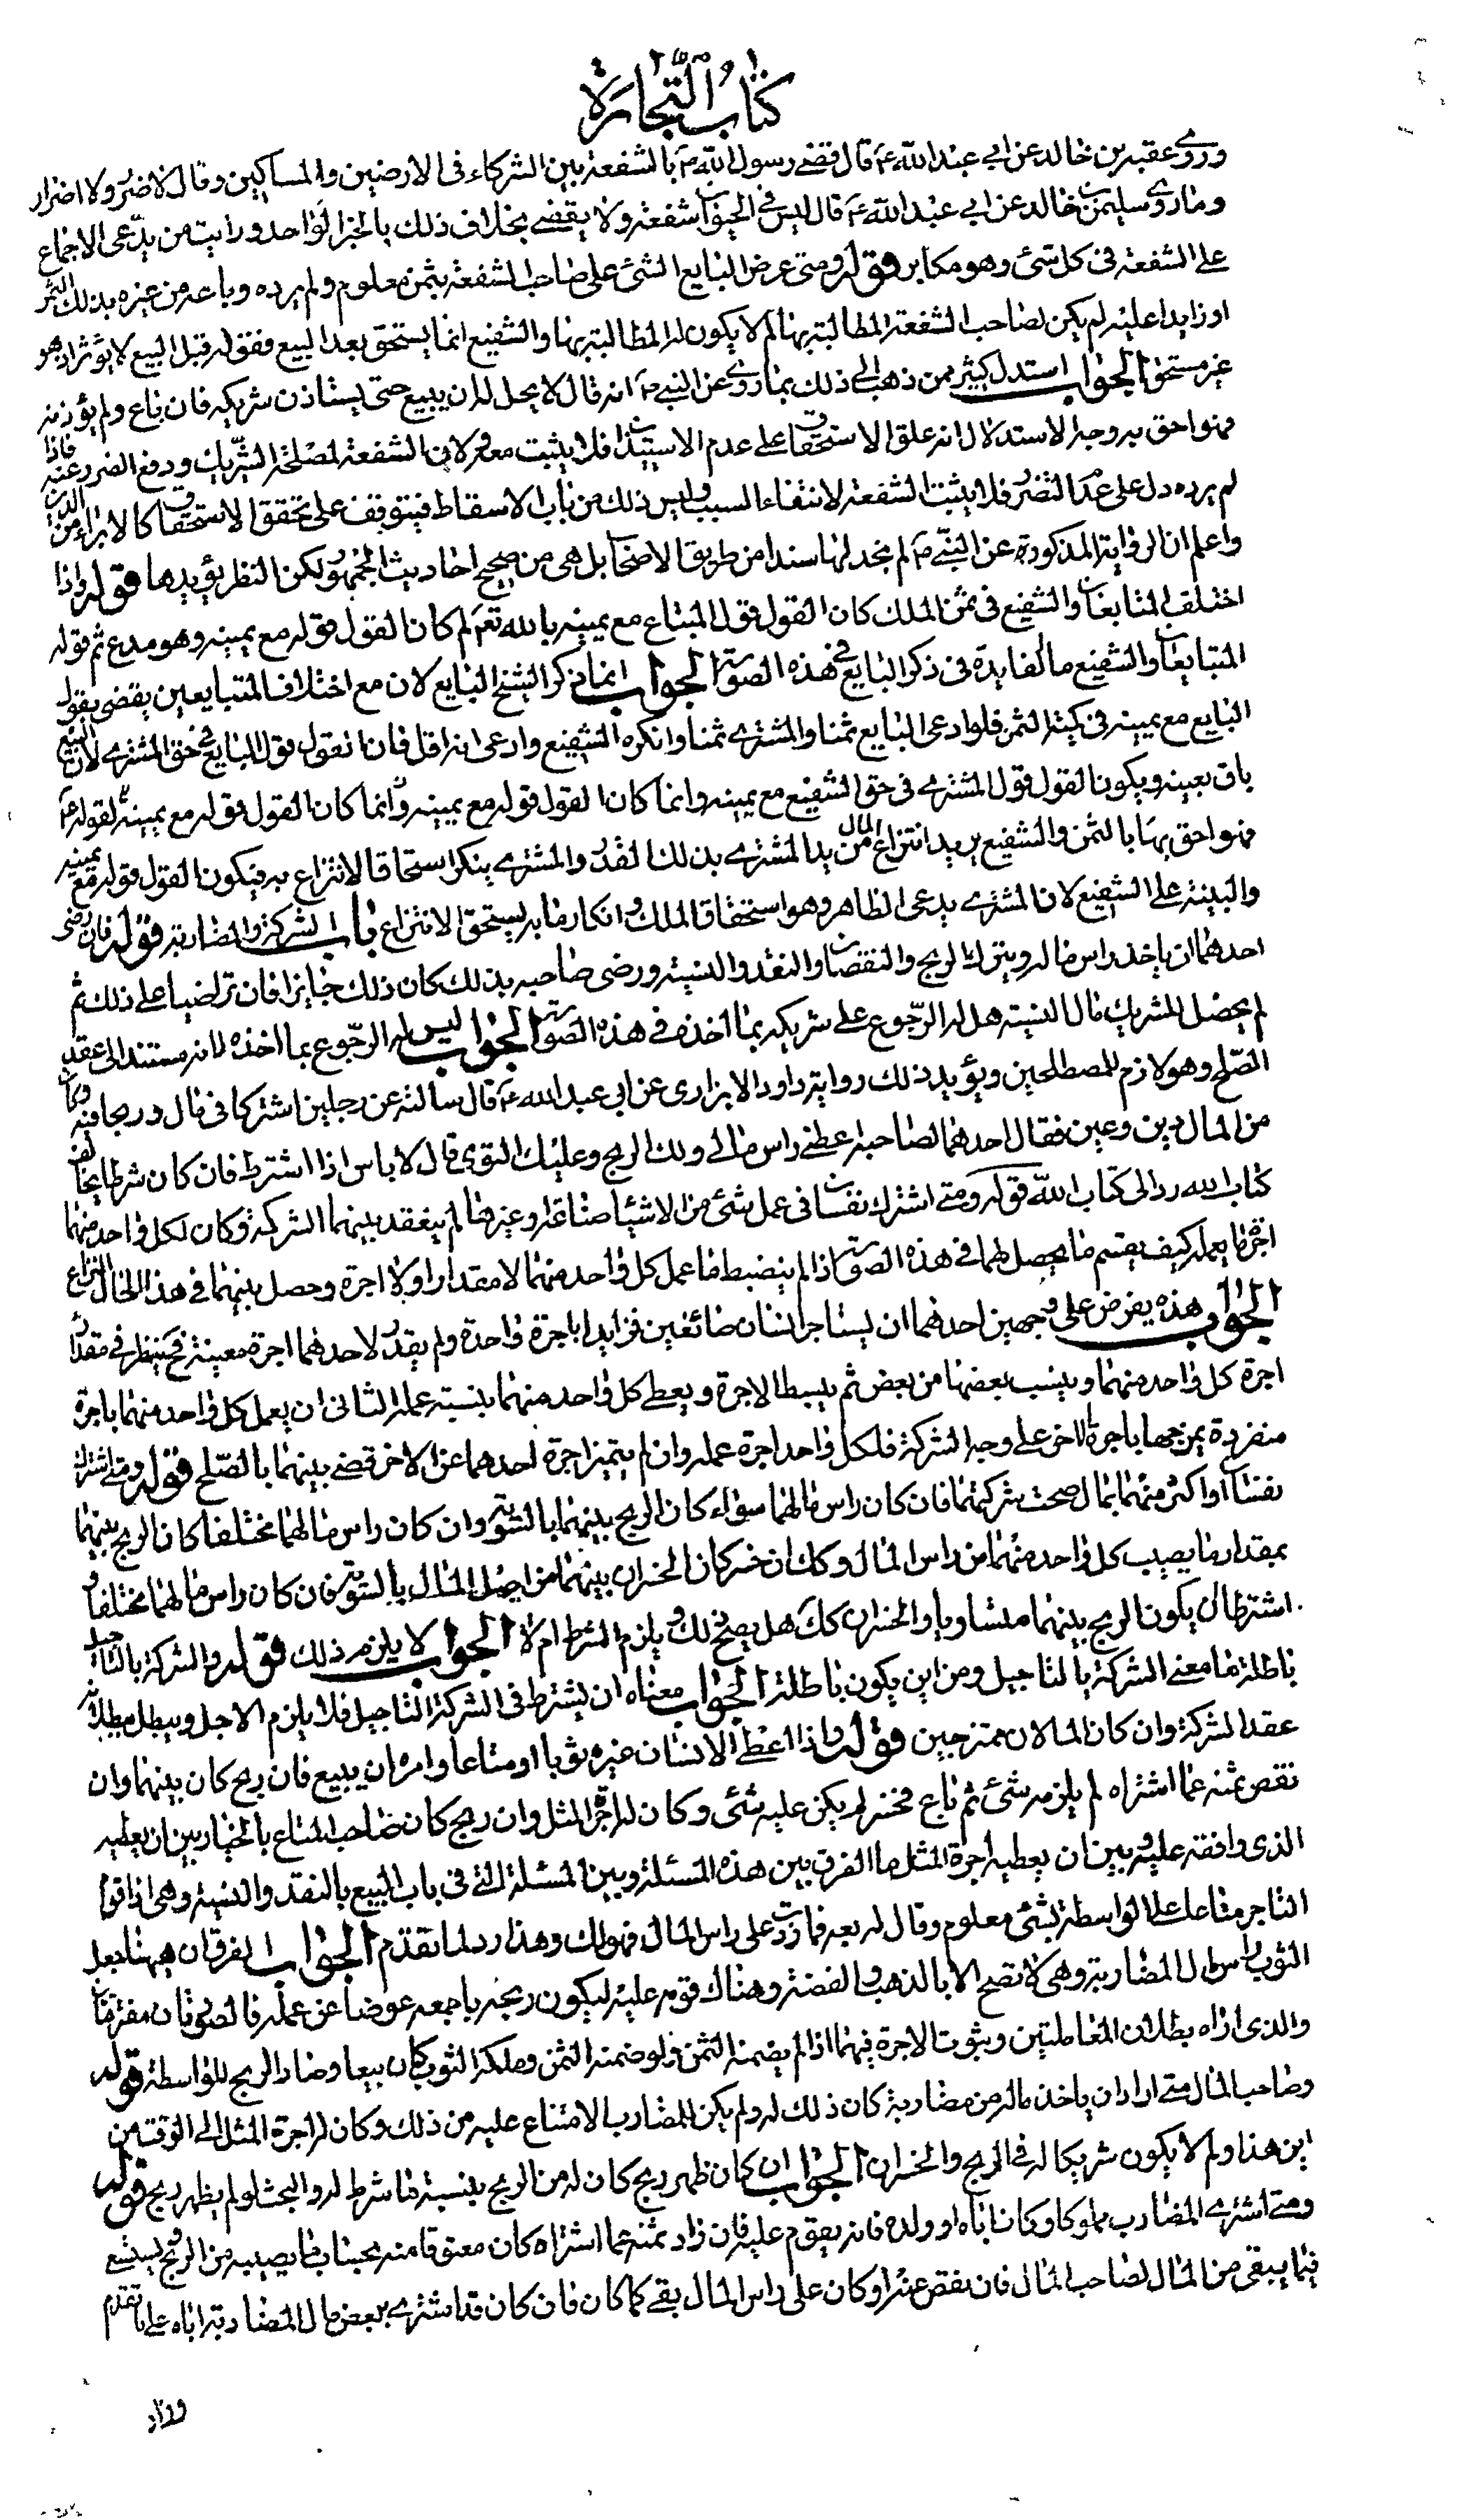 كتاب التجارة
وروى عقبة بن خالد عن ابي عبد الله ع قال قضى رسول الله ص بالشفعة بين الشركاء في الارضين والمساكين وقال لا ضرر ولا اضرار
وما روى سليمن بن خالد عن ابي عبد الله ع قال ليس في الحيوان شفعة ولا يقضى بخلاف ذلك بالخبر الواحد ورايت من يدعى الاجماع
على الشفعة في كل شئ وهو مكابر قوله ومتى عرض البايع الشئ على صاحب الشفعة بثمن معلوم ولم يرده وباعه من غيره بذلك الثمن
او زايدا عليه لم يكن لصاحب الشفعة المطالبة بها لم لا يكون له المطالبة بها والشفيع انما يستحق بعد البيع فقوله قبل البيع لا يؤثر اذ هو
غير مستحق الجواب استدل كثير ممن ذهب الى ذلك بما روى عن النبي ص انه قال لا يحل له ان يبيع حتى يستاذن شريكه فان باع ولم يؤذنه
فهو احق به وجه الاستدلال انه علق الاستحقاق على عدم الاستيذان فلا يثبت معه ولان الشفعة لمصلحة الشريك ودفع الضرر عنه فاذا
لم يرده دل على عدم التضرر فلا يثبت الشفعة لانتفاء السبب وليس ذلك من باب الاسقاط فيتوقف على تحقق الاستحقاق كالابراء من الدين
واعلم ان الرواية المذكورة عن النبي ص لم نجد لها سندا من طريق الاصحاب بل هي من صحيح احاديث الجمهور ولكن النظر يؤيدها قوله واذا
اختلف المتابعان والشفيع في ثمن الملك كان القول قول المبتاع مع يمينه بالله تعم لم كان القول قوله مع يمينه وهو مدع ثم قوله
المتبايعان والشفيع ما الفايدة في ذكر البايع في هذه الصورة الجواب انما ذكر الشيخ البايع لان مع اختلاف المتبايعين يقضى بقول
البايع مع يمينه في كمية الثمن فلو ادعى البايع ثمنا والمشترى ثمنا وانكره الشفيع وادعى انه اقل فان القول قول البايع في حق المشترى لان المبيع
باق بعينه ويكون القول قول المشترى في حق الشفيع مع يمينه وانما كان القول قوله مع يمينه وانما كان القول قوله مع يمينه لقوله ع
فهو احق بها بالثمن والشفيع يريد انتزاع المال من يد المشترى بذلك القدر والمشترى ينكر استحقاق الانتزاع به فيكون القول قوله مع يمينه
والبينة على الشفيع لان المشترى يدعى الظاهر وهو استحقاق الملك وانكار ما به يستحق الانتزاع باب الشركة والمضاربة قوله فان رضى
احدهما ان ياخذ راس ماله ويترك الربح والنقصان والنقد والنسية ورضى صاحبه بذلك كان ذلك جايزا فان تراضيا على ذلك ثم
لم يحصل للشريك مال النسية هل له الرجوع على شريكه بما اخذه في هذه الصورة الجواب ليس له الرجوع بما اخذه لانه مستند الى عقد
الصلح وهو لازم للمصطلحين ويؤيد ذلك رواية داود الابزاري عن ابي عبد الله ع قال سالته عن رجلين اشتركا في مال وربحا فيه وكان
من المال دين وعين فقال احدهما لصاحبه اعطنى راس مالى ولك الربح وعليك التوى قال لا باس اذا اشترط فان كان شرطا يخالف
كتاب الله رد الى كتاب الله قوله ومتى اشترك نفسان في عمل شئ من الاشياء صناعة او غيرها لم ينعقد بينهما الشركة وكان لكل واحد منهما
اجرة ما يعمله كيف يقسم ما يحصل لهما في هذه الصورة اذا لم ينضبط ما عمل كل واحد منهما لا مقدارا ولا اجرة وحصل بينهما في هذا الحال النزاع
الجواب هذه يفرض على وجهين احدهما ان يستاجر انسان صائغين فزايدا باجرة واحدة ولم يقدر لاحدهما اجرة معينة فح ينظر في مقدار
اجرة كل واحد منهما وينسب بعضها من بعض ثم يبسط الاجرة ويعطى كل واحد منهما بنسبة عمله الثاني ان يعمل كل واحد منهما باجرة
منفردة يمزجها باجرة الاخر على وجه الشركة فلكل واحد اجرة عمله وان لم يتميز اجرة احدهما عن الاخر قضى بينهما بالصلح قوله ومتى اشترك
نفسان او اكثر منهما بمال صحت شركتهما فان كان راس مالهما سواء كان الربح بينهما بالسوية وان كان راس مالهما مختلفا كان الربح بينهما
بمقدار ما يصيب كل واحد منهما من راس المال وكك ان خسر كان الخسران بينهما من اصل المال بالسوية فان كان راس مالهما مختلفا و
اشترطا ان يكون الربح بينهما متساويا والخسران كك هل يصح ذلك ويلزم الشرط ام لا الجواب لا يلزم ذلك قوله والشركة بالتاجيل
باطلة ما معنى الشركة بالتاجيل ومن اين يكون باطلة الجواب معناه ان يشترط في الشركة التاجيل فلا يلزم الاجل ويبطل
عقد الشركة وان كان المالان ممتزجين قوله واذا اعطى الانسان غيره ثوبا او متاعا وامره ان يبيع فان ربح كان بينهما وان
نقص ثمنه عما اشتراه لم يلزمه شئ ثم باع فخسر لم يكن عليه شئ وكان له اجرة المثل وان ربح كان صاحب المتاع بالخيار بين ان يعطيه
الذي وافقه عليه وبين ان يعطيه اجرة المثل ما الفرق بين هذه المسئلة وبين المسئلة التي في باب البيع بالنقد والنسية وهي اذا قوم
التاجر متاعا على الواسطة بشئ معلوم وقال له بعه فما زدت على راس المال فهو لك وهذا رد لما تقدم الجواب الفرق ان ههنا جعل
الثوب راس مال المضاربة وهي لا تصح الا بالذهب والفضة وهناك قومه عليه ليكون ربحه باجمعه عوضا عن عمله فالصورتان مفترقتان
والذي اراه بطلان المعاملتين وثبوت الاجرة فيهما اذا لم يضمنه الثمن ولو ضمنه الثمن وملكه الثوب كان بيعا وصار الربح للواسطة قوله
وصاحب المال متى اراد ان ياخذ ماله من مضاربة كان ذلك له ولم يكن للمضارب الامتناع عليه من ذلك وكان له اجرة المثل الى الوقت من
اين هذا ولم لا يكون شريكا له في الربح والخسران الجواب ان كان ظهر ربح كان له من الربح بنسبة ما شرط له والبحث لو لم يظهر ربح قوله
ومتى اشترى المضارب مملوكا وكان اباه او ولده فانه يقوم عليه فان زاد ثمنه عما اشتراه كان معتوقا منه بحساب ما يصيبه من الربح ويستسعى
فيما يبقى من المال لصاحب المال فان نقص عنه او كان على راس المال بقى كما كان فان كان قد اشترى ببعض مال المضاربة اباه على ما تقدم